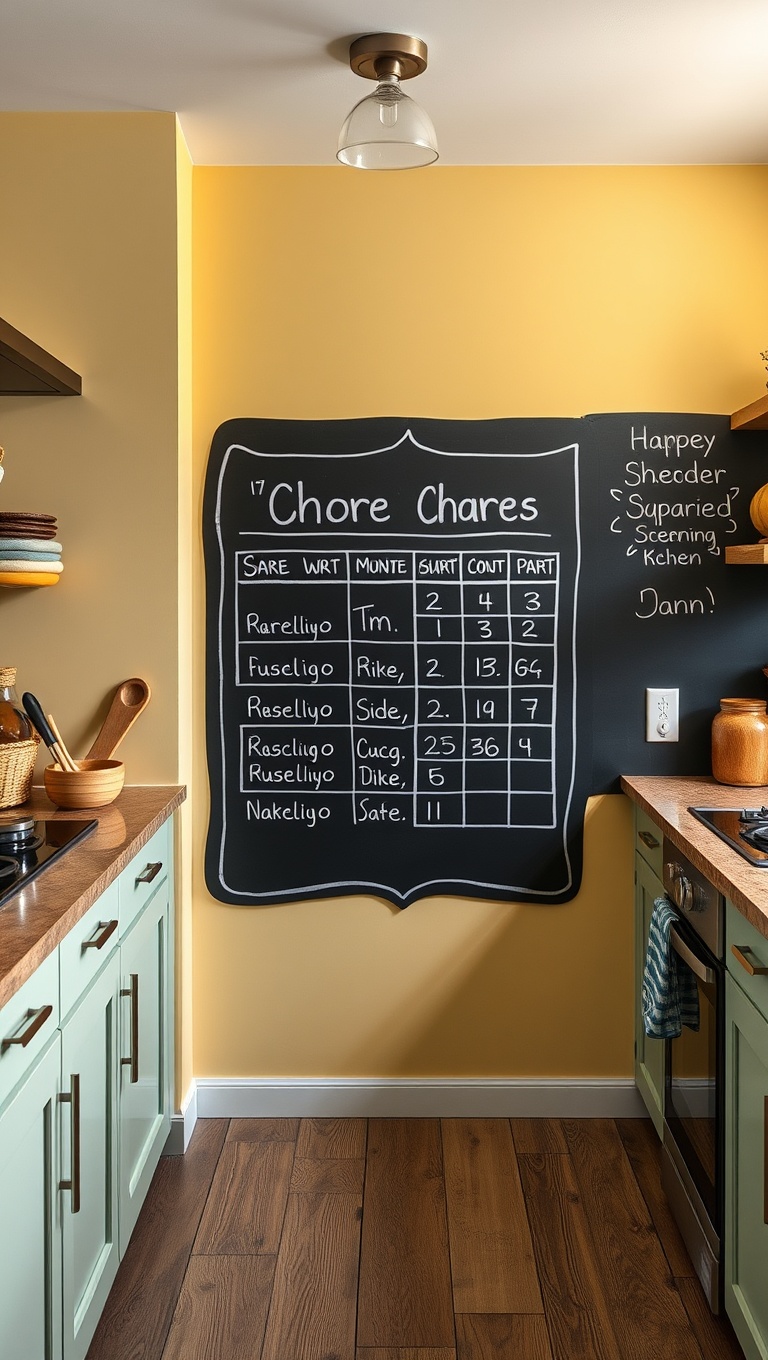 "17 Chore Chares
SARE WRT MONTE SURT CONT PART
2 4 3
Rarelliyo Tm. 1 3 2
Fuseligo Rike, 2. 13. 64
Rasellyo Side, 2. 19 7
Rascliugo Cucg. 25 36 4
Ruselliyo Dike, 5
Nakeliyo Sate. 11
Happey
Sheoder
Suparied
Scerning
Kchen
Dann!